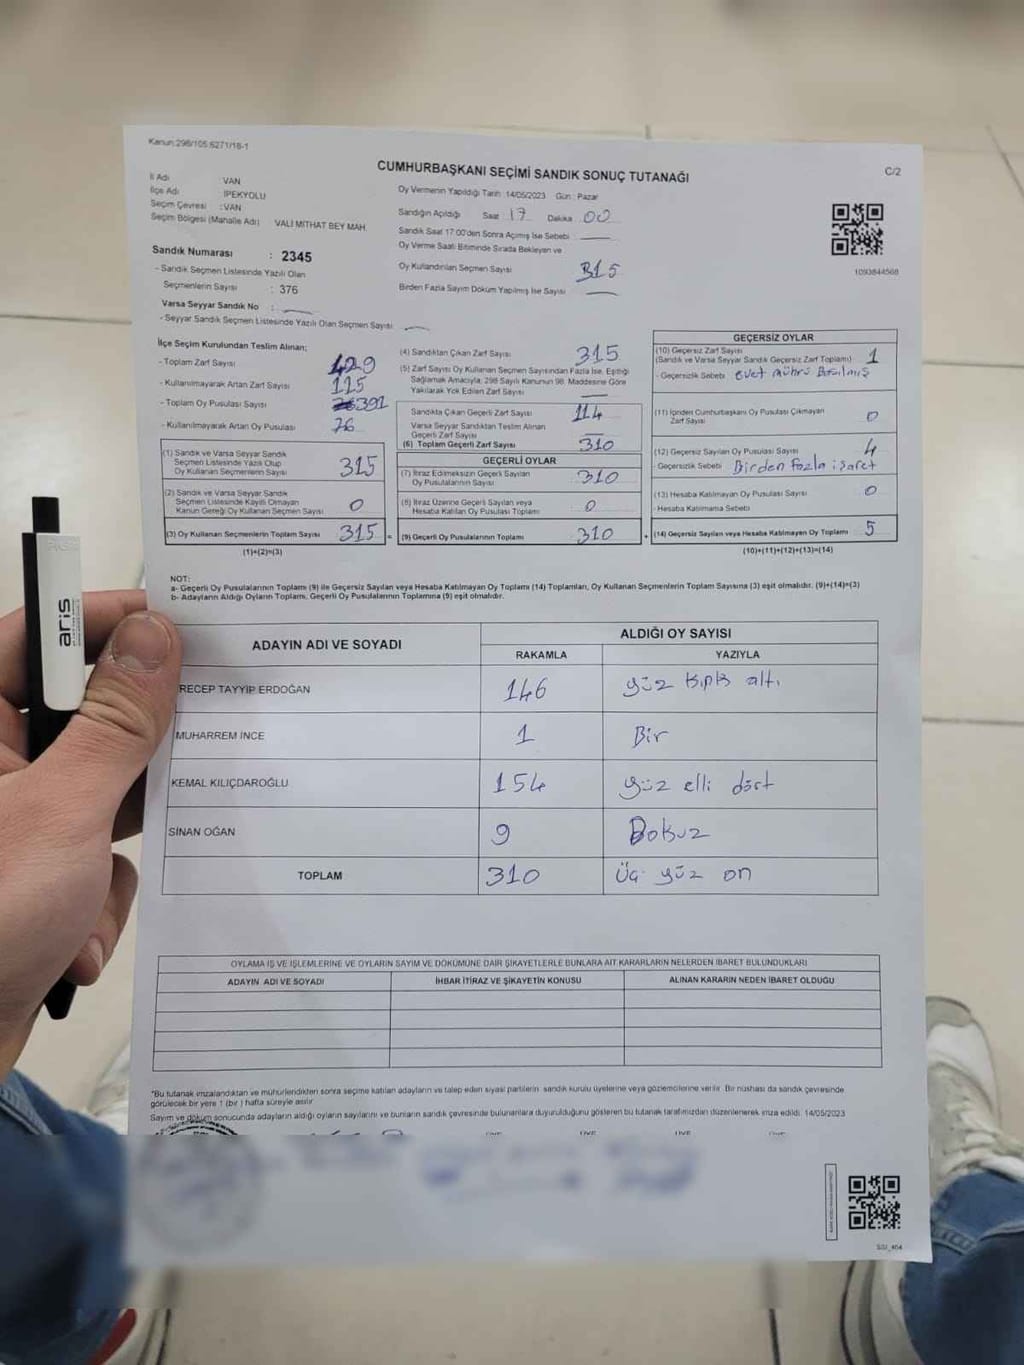 Kanun:298/105:6271/18-1
CUMHURBAŞKANI SEÇİMİ SANDIK SONUÇ TUTANAĞI
C/2
İl Adı VAN
İlçe Adı İPEKYOLU
Seçim Çevresi : VAN
Seçim Bölgesi (Mahalle Adı) VALİ MİTHAT BEY MAH.
Oy Vermenin Yapıldığı Tarih 14/05/2023 Gün : Pazar
Sandığın Açıldığı Saat 17 Dakika 00
Sandık Saat 17:00'den Sonra Açılmış İse Sebebi
Oy Verme Saati Bitiminde Sırada Bekleyen ve
Oy Kullandırılan Seçmen Sayısı 315
Birden Fazla Sayım Döküm Yapılmış İse Sayısı
1093844568
Sandık Numarası : 2345
- Sandık Seçmen Listesinde Yazılı Olan
Seçmenlerin Sayısı : 376
Varsa Seyyar Sandık No :
- Seyyar Sandık Seçmen Listesinde Yazılı Olan Seçmen Sayısı
İlçe Seçim Kurulundan Teslim Alınan;
- Toplam Zarf Sayısı 429
- Kullanılmayarak Artan Zarf Sayısı 115
- Toplam Oy Pusulası Sayısı 391
- Kullanılmayarak Artan Oy Pusulası 76
(1) Sandık ve Varsa Seyyar Sandık
Seçmen Listesinde Yazılı Olup
Oy Kullanan Seçmenlerin Sayısı 315
(2) Sandık ve Varsa Seyyar Sandık
Seçmen Listesinde Kayıtlı Olmayan
Kanun Gereği Oy Kullanan Seçmen Sayısı 0
(3) Oy Kullanan Seçmenlerin Toplam Sayısı 315 =
(1)+(2)=(3)
(4) Sandıktan Çıkan Zarf Sayısı 315
(5) Zarf Sayısı Oy Kullanan Seçmen Sayısından Fazla İse, Eşitliği
Sağlamak Amacıyla; 298 Sayılı Kanunun 98. Maddesine Göre
Yakılarak Yok Edilen Zarf Sayısı
Sandıkta Çıkan Geçerli Zarf Sayısı 114
Varsa Seyyar Sandıktan Teslim Alınan
Geçerli Zarf Sayısı
(6) Toplam Geçerli Zarf Sayısı 310
GEÇERLİ OYLAR
(7) İtiraz Edilmeksizin Geçerli Sayılan
Oy Pusulalarının Sayısı 310
(8) İtiraz Üzerine Geçerli Sayılan veya
Hesaba Katılan Oy Pusulası Toplamı 0
(9) Geçerli Oy Pusulalarının Toplamı 310 +
GEÇERSİZ OYLAR
(10) Geçersiz Zarf Sayısı
(Sandık ve Varsa Seyyar Sandık Geçersiz Zarf Toplamı) 1
- Geçersizlik Sebebi evet mührü Basılmış
(11) İçinden Cumhurbaşkanı Oy Pusulası Çıkmayan
Zarf Sayısı 0
(12) Geçersiz Sayılan Oy Pusulası Sayısı 4
- Geçersizlik Sebebi Birden fazla işaret
(13) Hesaba Katılmayan Oy Pusulası Sayısı 0
- Hesaba Katılmama Sebebi
(14) Geçersiz Sayılan veya Hesaba Katılmayan Oy Toplamı 5
(10)+(11)+(12)+(13)=(14)
NOT:
a- Geçerli Oy Pusulalarının Toplamı (9) ile Geçersiz Sayılan veya Hesaba Katılmayan Oy Toplamı (14) Toplamları, Oy Kullanan Seçmenlerin Toplam Sayısına (3) eşit olmalıdır. (9)+(14)=(3)
b- Adayların Aldığı Oyların Toplamı, Geçerli Oy Pusulalarının Toplamına (9) eşit olmalıdır.
ADAYIN ADI VE SOYADI
ALDIĞI OY SAYISI
RAKAMLA YAZIYLA
RECEP TAYYİP ERDOĞAN 146 yüz kırk altı
MUHARREM İNCE 1 Bir
KEMAL KILIÇDAROĞLU 154 yüz elli dört
SİNAN OĞAN 9 Dokuz
TOPLAM 310 Üç yüz on
OYLAMA İŞ VE İŞLEMLERİNE VE OYLARIN SAYIM VE DÖKÜMÜNE DAİR ŞİKAYETLERLE BUNLARA AİT KARARLARIN NELERDEN İBARET BULUNDUKLARI
ADAYIN ADI VE SOYADI İHBAR İTİRAZ VE ŞİKAYETİN KONUSU ALINAN KARARIN NEDEN İBARET OLDUĞU
*Bu tutanak imzalandıktan ve mühürlendikten sonra seçime katılan adayların ve talep eden siyasi partilerin sandık kurulu üyelerine veya gözlemcilerine verilir. Bir nüshası da sandık çevresinde
görülecek bir yere 1 (bir) hafta süreyle asılır
Sayım ve döküm sonucunda adayların aldığı oyların sayılarını ve bunların sandık çevresinde bulunanlara duyurulduğunu gösteren bu tutanak tarafımızdan düzenlenerek imza edildi. 14/05/2023
aris